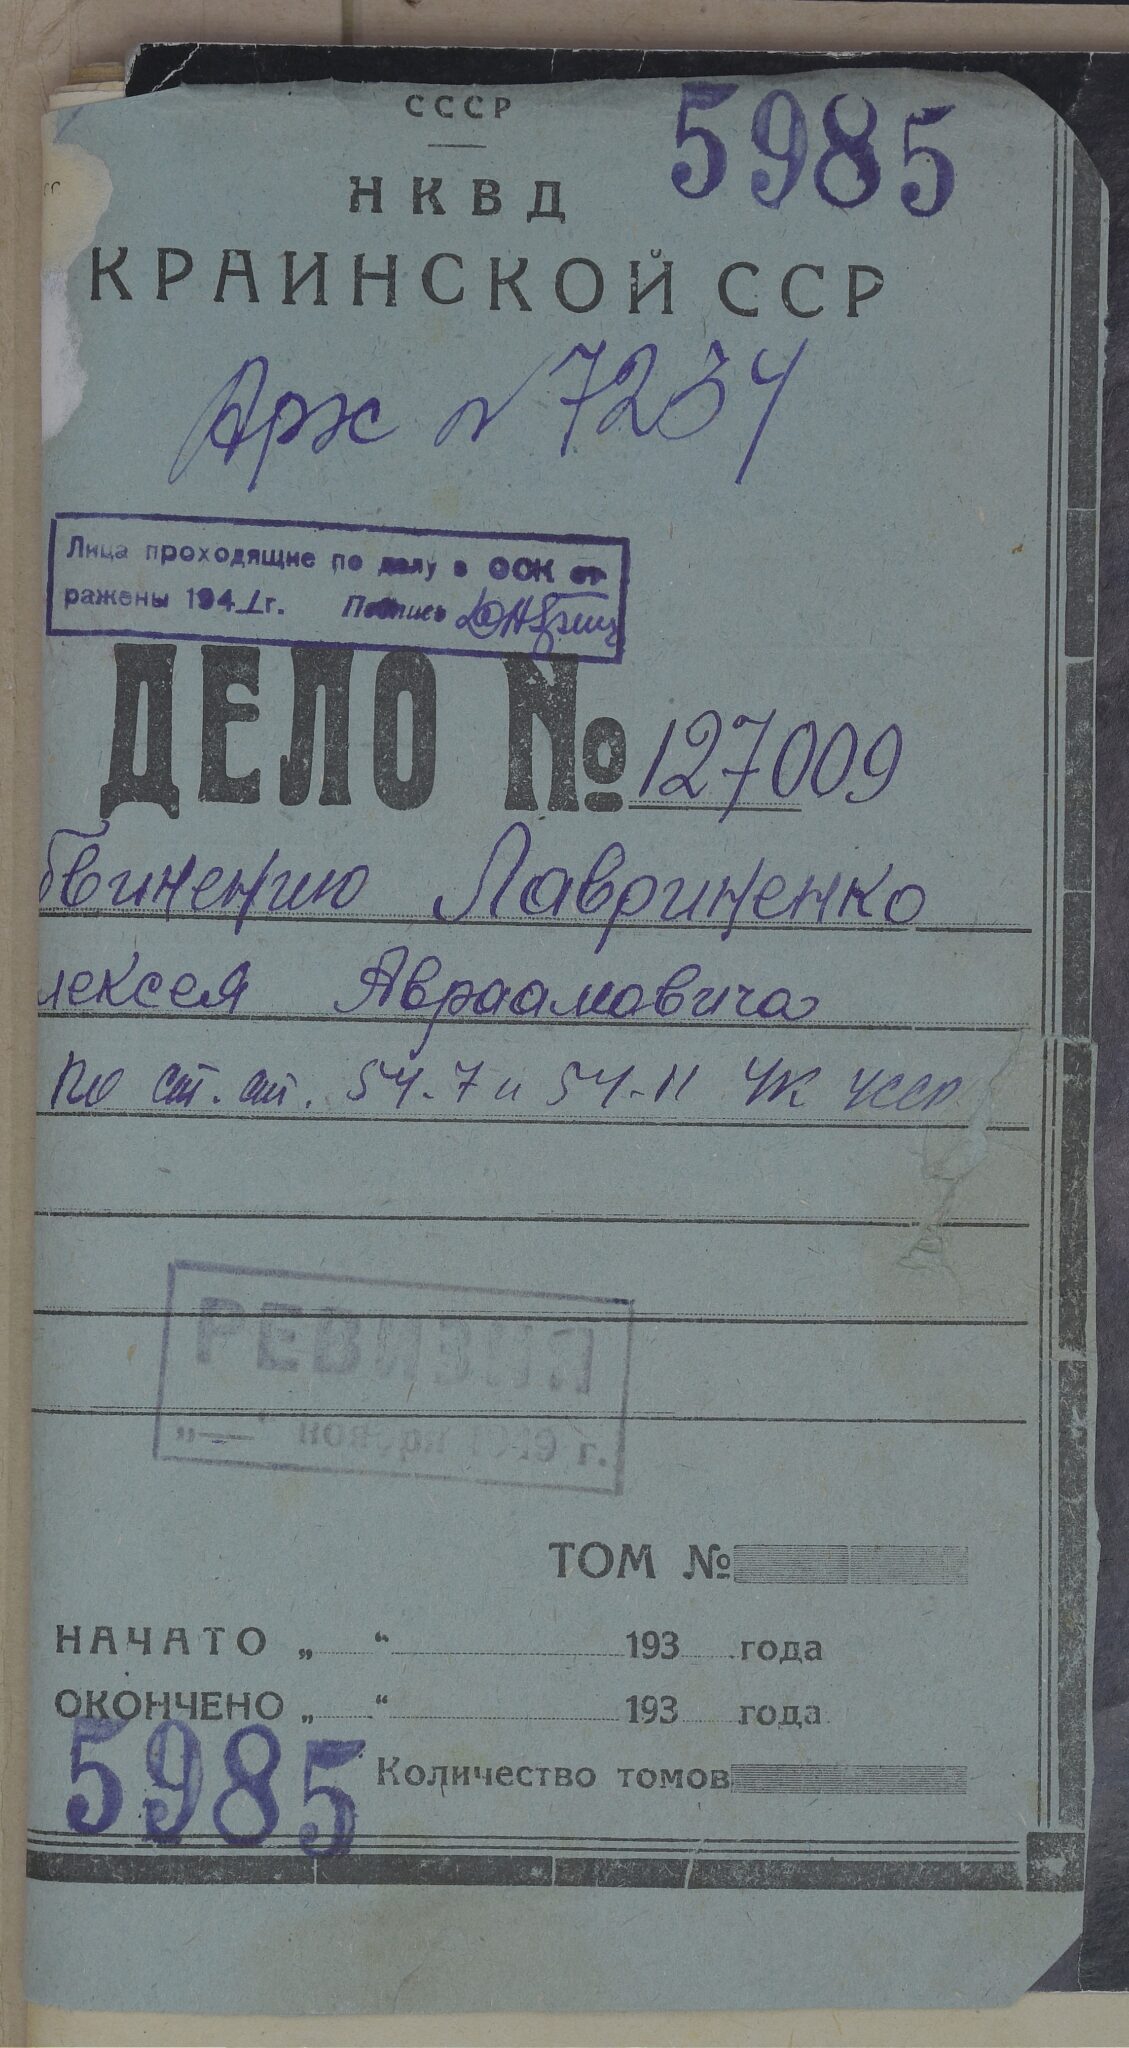 СССР
5985
НКВД
КРАИНСКОЙ ССР
Арх N 7234
Лица проходящие по делу в ООК от-
ражены 1941 г. Подпись
ДЕЛО № 127009
бвинению Лавриненко
лексея Авраамовича
по ст. ст. 54-7 и 54-11 УК УССР
РЕВИЗИЯ
ТОМ №
НАЧАТО „ “ 193 года
ОКОНЧЕНО „ “ 193 года
5985
Количество томов